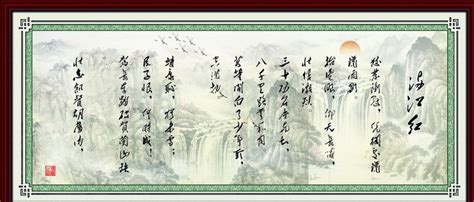 满江红
怒发冲冠，凭栏处潇
潇雨歇
抬望眼，仰天长啸，
壮怀激烈
三十功名尘与土
八千里路云和月
莫等闲白了少年头，
空悲切
靖康耻，犹未雪；
臣子恨，何时灭！
驾长车踏破贺兰山缺
壮志饥餐胡虏肉，